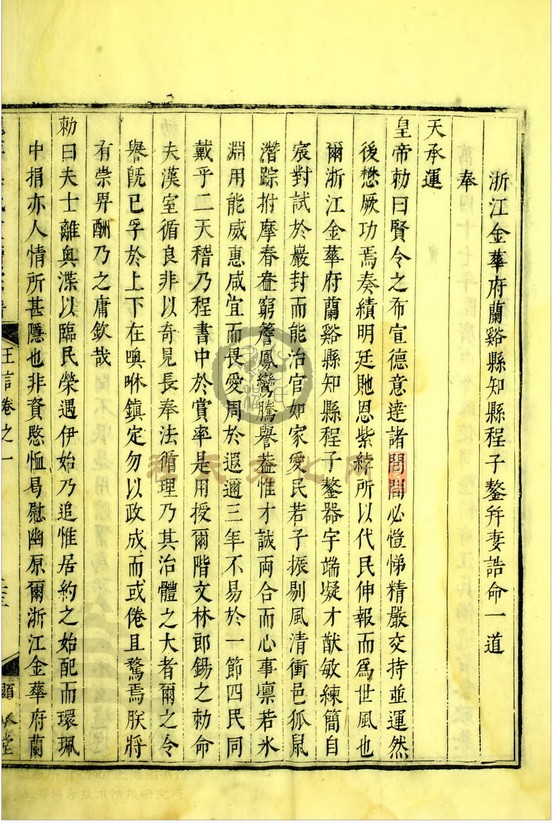 浙江金華府蘭谿縣知縣程子鏊并妻誥命一道
奉
天承運
皇帝勅曰賢令之布宣德意達諸閭閻必愷悌精嚴交持並運然
後懋厥功焉奏績明廷貤恩紫綍所以代民伸報而為世風也
爾浙江金華府蘭谿縣知縣程子鏊器宇端凝才猷敏練簡自
宸對試於巖封而能治官如家愛民若子振剔風清衝邑狐鼠
潛踪拊摩春盎窮簷鳳鸞騰譽蓋惟才誠兩合而心事凛若氷
淵用能威惠咸宜而畏愛周於遐邇三年不易於一節四民同
戴乎二天稽乃程書中於賞率是用授爾階文林郎錫之勅命
夫漢室循良非以奇見長奉法循理乃其治體之大者爾之令
譽旣已孚於上下在噢咻鎮定勿以政成而或倦且驁焉朕將
有崇畀酬乃之庸欽哉
勅曰夫士離輿渫以臨民榮遇伊始乃追惟居約之始配而環珮
中捐亦人情所甚隱也非資愍恤曷慰幽原爾浙江金華府蘭
王言卷之一